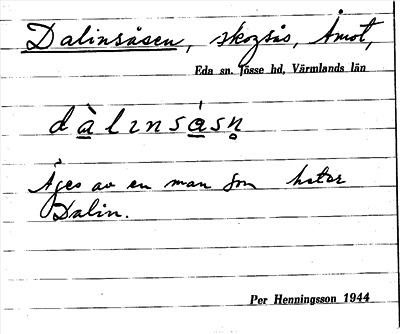 Dalinsåsen, skogsås, Åmot,
Eda sn. Jösse hd, Värmlands län
dàlınsásn̥
Äges av en man som heter
Dalin.
Per Henningsson 1944